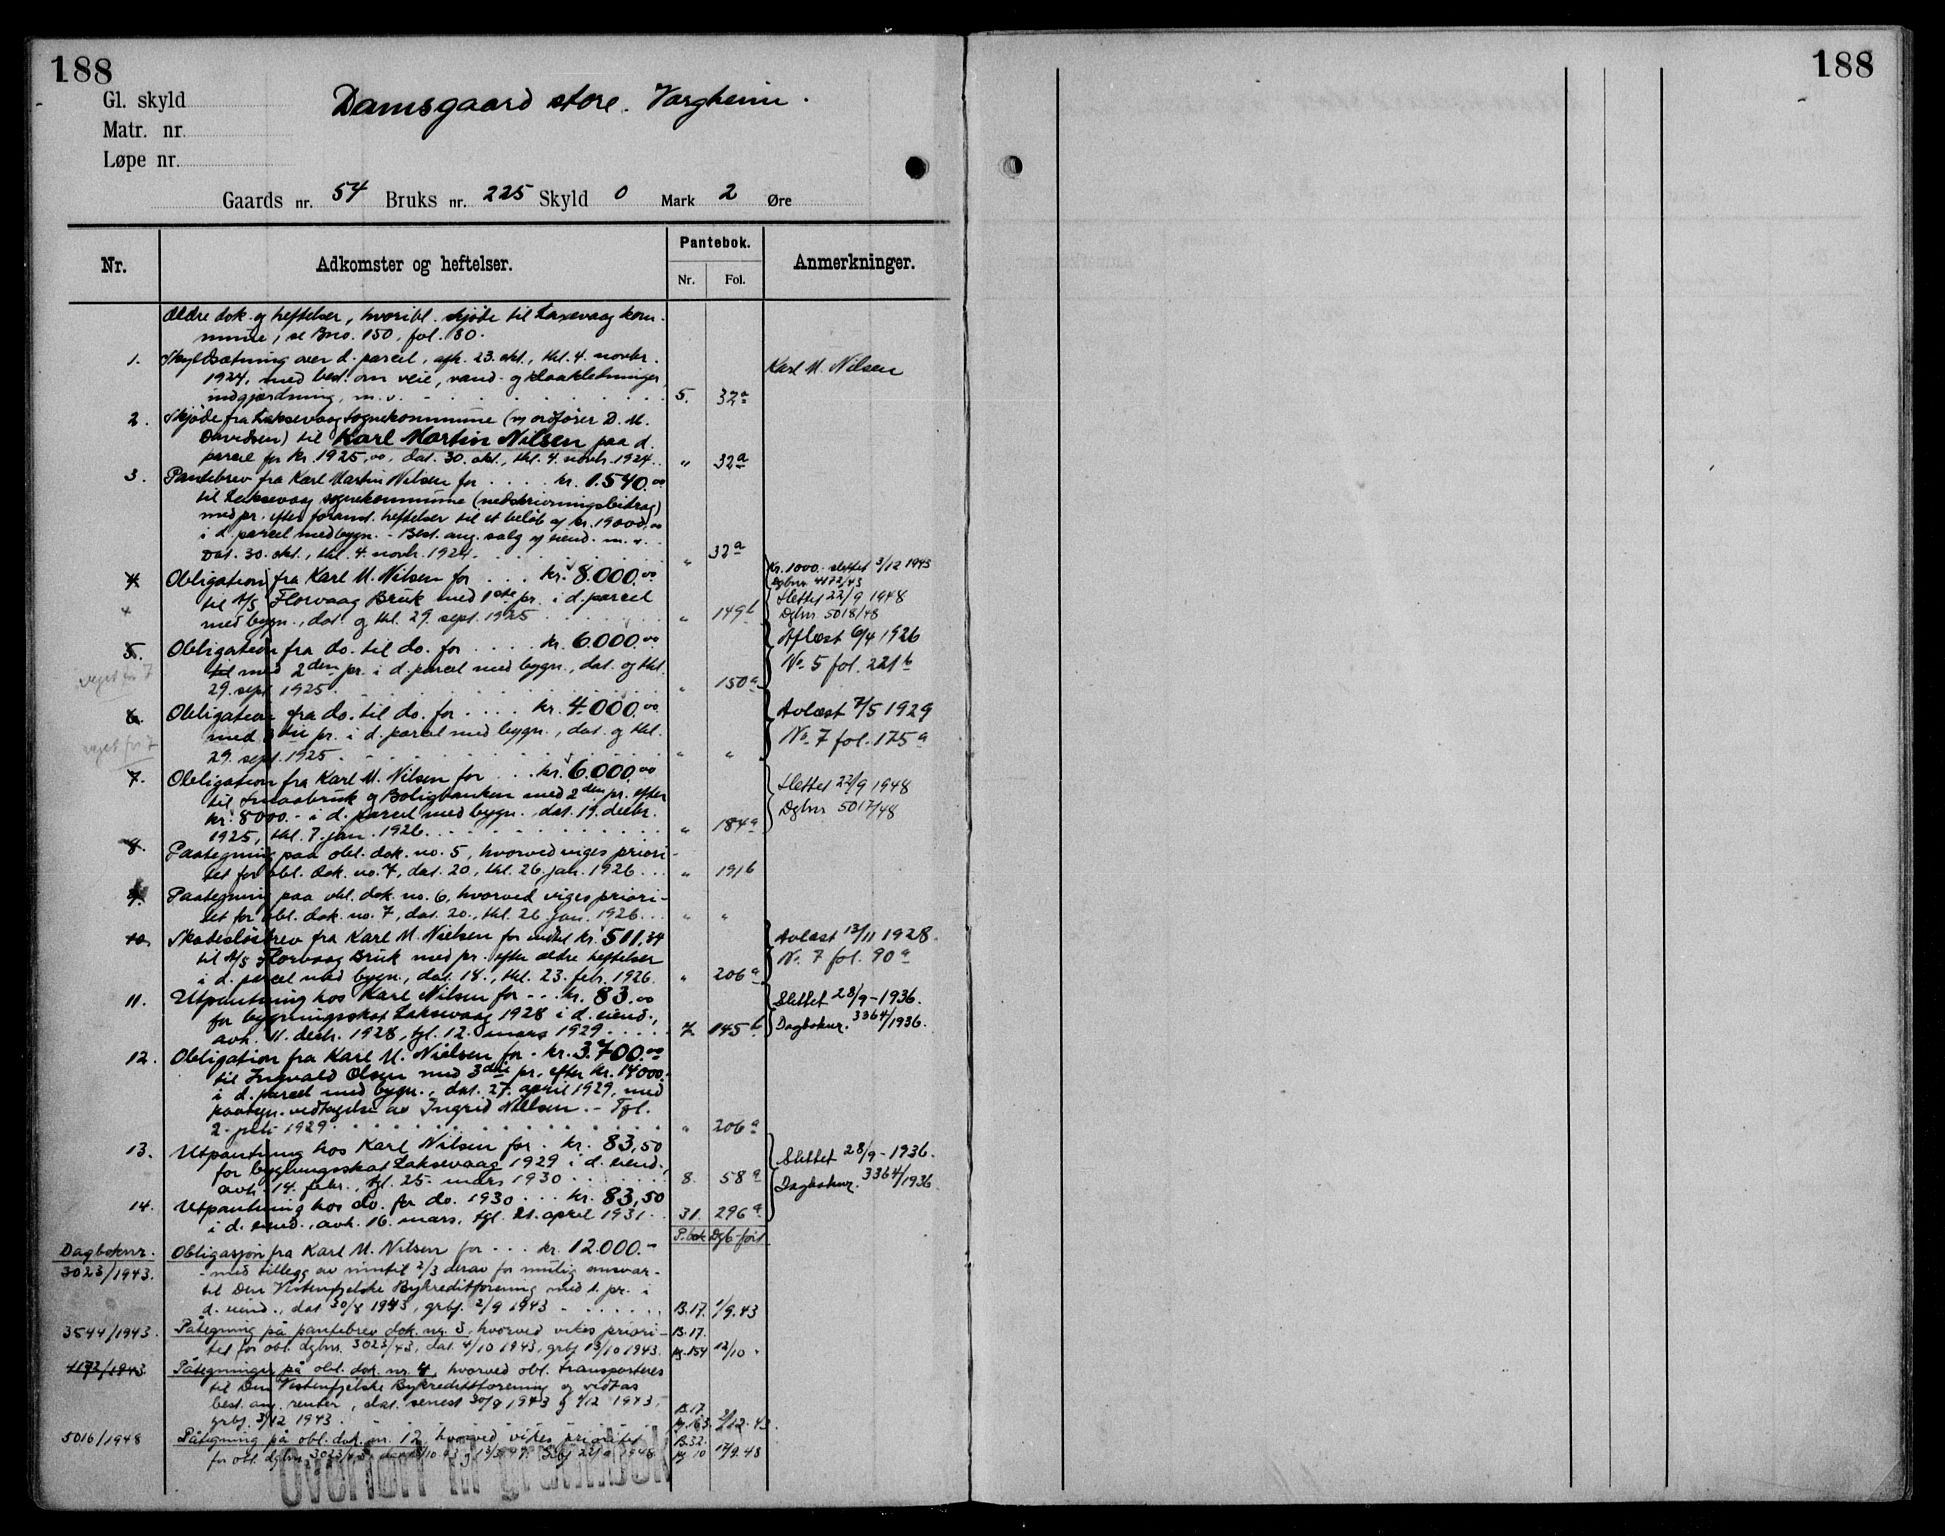 188
188
Gl. skyld
Damsgaard store. Vargheim.
Matr. nr.
Løpe nr.
Gaards nr. 54 Bruks nr. 225 Skyld 0 Mark 2 Øre
Nr.
Adkomster og heftelser.
Pantebok.
Nr. Fol.
Anmerkninger.
Ældre dok. og heftelser, hvoribl. skjöte til Laxevaag kom-
mune, se Bno. 150, fol. 180.
1. Skyldsætning over d. parcel, afh. 23. okt., thl. 4. novbr.
1924, med best. om veie, vand- og kloakledninger,
indgjærdning, m. v. 5. 32a
Karl M. Nilsen
2. Skjøde fra Laksevaag sognekommune (v/ ordfører D. M.
Davidsen) til Karl Martin Nilsen paa d.
parcel for kr. 1925,00, dat. 30. okt., thl. 4. novbr. 1924. " 32a
3. Pantebrev fra Karl Martin Nilsen for .... kr. 1.540.00
til Laksevaag sognekommune (nedskrivningsbidrag)
med pr. efter forannt. heftelser til et beløb af kr. 19000,00
i d. parcel med bygn. - Best. ang. salg af eiend. m. v.
Dat. 30. okt., thl. 4. novbr. 1924. " 32a
4. Obligation fra Karl M. Nilsen for .... kr. 8.000.00
til A/S Florvaag Bruk med 1ste pr. i d. parcel
med bygn., dat. og thl. 29. sept. 1925 " 149b
Kr. 1000.- slettet 3/12 1943
Dgbnr. 4172/43
Slettet 22/9 1948
Dgbnr. 5018/48
5. Obligation fra do. til do. for .... kr. 6.000.00
til med 2den pr. i d. parcel med bygn., dat. og thl.
29. sept. 1925 " 150a
veget for 7
Aflæst 6/4 1926
No. 5 fol. 221b
6. Obligation fra do. til do. for .... kr. 4.000.00
med 3die pr. i d. parcel med bygn., dat. og thl.
29. sept. 1925 " "
veget for 7
Avlæst 7/5 1929
No. 7 fol. 175a
7. Obligation fra Karl M. Nilsen for ... kr. 6.000.00
til Smaabruk og Boligbanken med 2den pr. efter
kr. 8000.- i d. parcel med bygn. dat. 19. decbr.
1925, thl. 7. jan. 1926 " 184a
Slettet 22/9 1948
Dgbnr 5017/48
8. Paategning paa obl. dok. no. 5, hvorved viges priori-
tet for obl. dok. no. 7, dat. 20., thl. 26. jan. 1926 ... " 191b
9. Paategning paa obl. dok. no. 6, hvorved viges priori-
tet for obl. dok. no. 7, dat. 20., thl. 26. jan. 1926 ... " "
10. Skadesløsbrev fra Karl M. Nielsen for indtil kr. 511,34
til A/S Florvaag Bruk med pr. efter ældre heftelser
i d. parcel med bygn., dat. 18., thl. 23. febr. 1926. " 206a
Avlæst 13/11 1928.
No. 7 fol. 90a
11. Utpantning hos Karl Nilsen for ... kr. 83.00
for bygningsskat Laksevaag 1928 i d. eiend.,
avh. 11. decbr. 1928, tgl. 12. mars 1929 ..... 7. 145b
Slettet 28/9-1936.
Dagboknr. 3364/1936.
12. Obligation fra Karl M. Nielsen for kr. 3.700.00
til Ingvald Olsen med 3die pr. efter kr. 14000.-
i d. parcel med bygn., dat. 27. april 1929, med
paategn. vedtagelse av Ingrid Nielsen. - Tgl.
2. juli 1929 " 206a
13. Utpantning hos Karl Nilsen for . kr. 83,50
for bygningsskat Laksevaag 1929 i d. eiend.,
avh. 14. febr., tgl. 25. mars 1930 8. 58a
Slettet 28/9-1936.
Dagboknr. 3364/1936.
14. Utpantning hos do. for do. 1930 ... kr. 83,50
i d. eiend., avh. 16. mars, tgl. 21. april 1931. 31. 296a
P.bok Dgb-ført
Dagboknr.
3023/1943. Obligasjon fra Karl M. Nilsen for ... kr. 12.000.-
- med tillegg av inntil 2/3 derav for mulig ansvar -
til Den Vestenfjelske Bykredittforening med 1. pr. i
d. eiend., dat 30/8 1943, grbf. 2/9 1943 B.17. 1/9.43
3544/1943. Påtegning på pantebrev dok. nr. 3, hvorved vikes priori-
tet for obl. dgbnr. 3023/43, dat. 4/10 1943, grbf 13/10 1943. B.17. pg. 154 12/10 "
4172/1943 Påtegninger på obl. dok. nr. 4, hvorved obl. transporteres
til Den Vestenfjelske Bykredittforening og vidtas
best. ang. renter, dat. senest 30/9 1943 og 1/12 1943,
grbf. 3/12 1943. B.17. pg. 163. 2/12.43.
5016/1948 Påtegning på obl. dok. nr. 12, hvorved vikes prioritet
for obl. dgbnr. 3023/43 B.32. pg 10 17/9.48
Overført til grunnbok